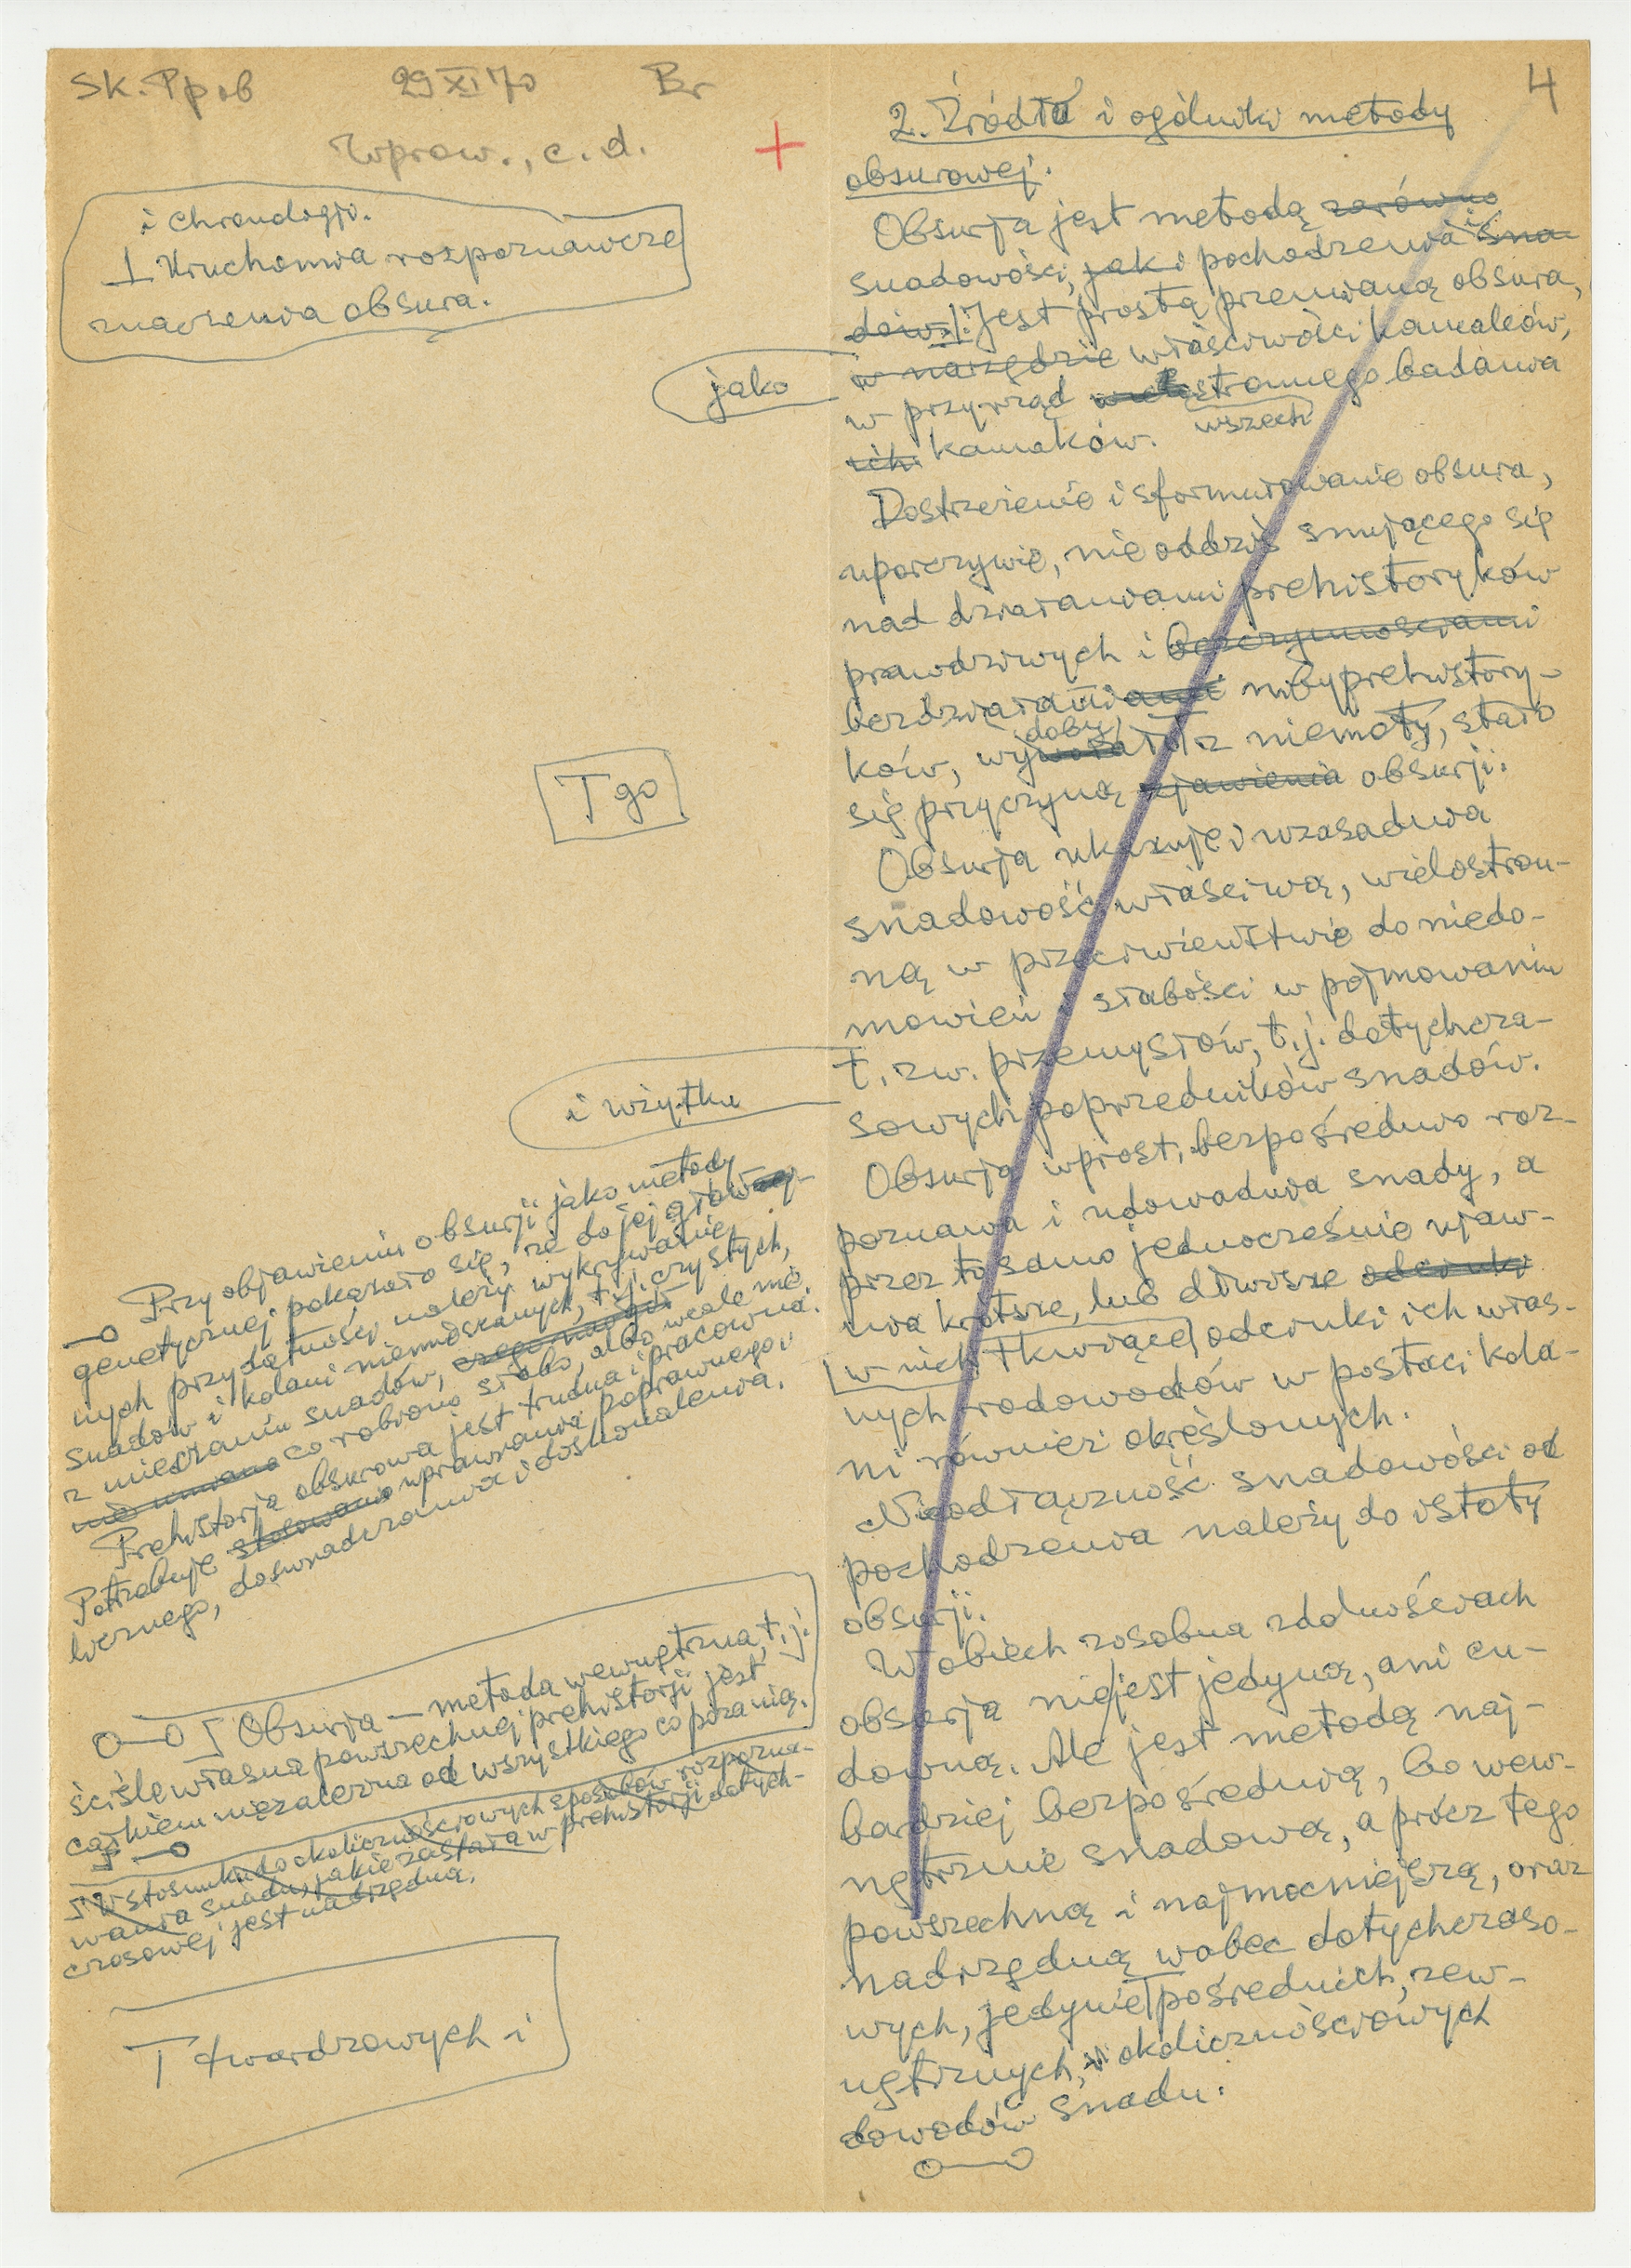 Sk. Pp ob 29 XI 70 Br
Wpraw., c. d.
+
4
i chronologji.
⊥ Uruchomia rozpoznawcze
znaczenia obsura.
jako
T go
i użytku
Przy objawieniu obsurji jako metody
genetycznej pokazało się, że do jej głów-
nych przydatności należy wykrywanie
snadów i kolani niemieszanych, t. j. czystych,
z mieszaniu snadów, czego nawet
nie umiano co robiono słabo, albo wcale nie.
Prehistorja obsurowa jest trudna i pracowita.
Potrzebuje stosowania uprawiania poprawnego i
licznego, doświadczania i doskonalenia.
o—o Obsurja — metoda wewnętrzna, t. j.
ściśle własna powszechnej prehistorji jest
całkiem niezależna od wszystkiego co poza nią.
W stosunku do okolicznościowych sposobów rozpozna-
wania snadu, jakie zastała w prehistorji dotych-
czasowej jest nadrzędna.
T twardzowych i
2. Źródła i ogólniki metody
obsurowej.
Obsurja jest metodą zarówno
snadowości, jak i pochodzenia sna-
dów. Jest prostą przemianą obsura,
w narzędzie właściwości kamaków,
w przyrząd stronnego badania
wszech
ich kamaków.
Dostrzeżenie i sformułowanie obsura,
uporczywie, nie oddziś snującego się
nad działaniami prehistoryków
prawdziwych i bezczynnościami
bezdziałaniami nibyprehistory-
ków, wydobyła z niemoty, stało
się przyczyną zjawienia obsurji.
Obsurja ukazuje i uzasadnia
snadowość właściwą, wielostron-
ną w przeciwieństwie do niedo-
mówień i słabości w pojmowaniu
t. zw. przemysłów, t. j. dotychcza-
sowych poprzedników snadów.
Obsurja wprost, bezpośrednio roz-
poznawa i udowadnia snady, a
przez to samo jednocześnie ujaw-
nia krótsze, lub dłuższe odcinki
w nich tkwiące odcinki ich włas-
nych rodowodów w postaci kola-
ni również określonych.
Nieodłączność snadowości od
pochodzenia należy do istoty
obsurji.
W obiech zosobna zdolnościach
obsurja nie jest jedyną, ani cu-
downą. Ale jest metodą naj-
bardziej bezpośrednią, bo wew-
nętrznie snadową, a prócz tego
powszechną i najmocniejszą, oraz
nadrzędną wobec dotychczaso-
wych, jedynie pośrednich, zew-
nętrznych, i okolicznościowych
dowodów snadu.